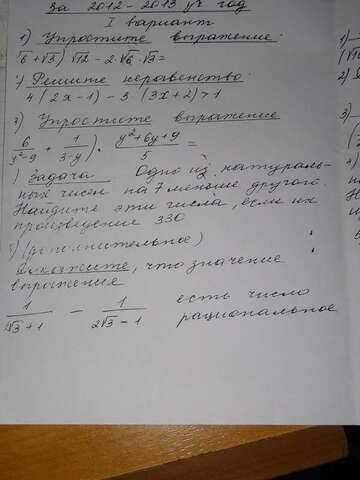 за 2012-2013 уч год
I вариант
1) Упростите выражение:
√6+√3) √12 - 2·√6·√3=
) Решите неравенство:
4(2x-1) - 3·(3x+2)>1
3) Упростите выражение
(6/(y²-9) + 1/(3-y)) · (y²+6y+9)/5 =
) Задача Одно из натураль-
ных чисел на 7 меньше другого.
Найдите эти числа, если их
произведение 330
5) (дополнительное)
Докажите, что значение
выражения
1/(2√3+1) - 1/(2√3-1) есть число
рациональное
1)
(√
2)